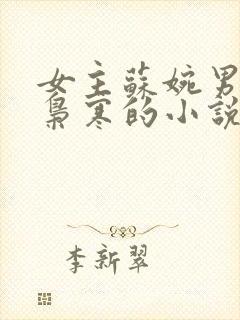 女主蘇婉男
梟寒的小説
李新翠